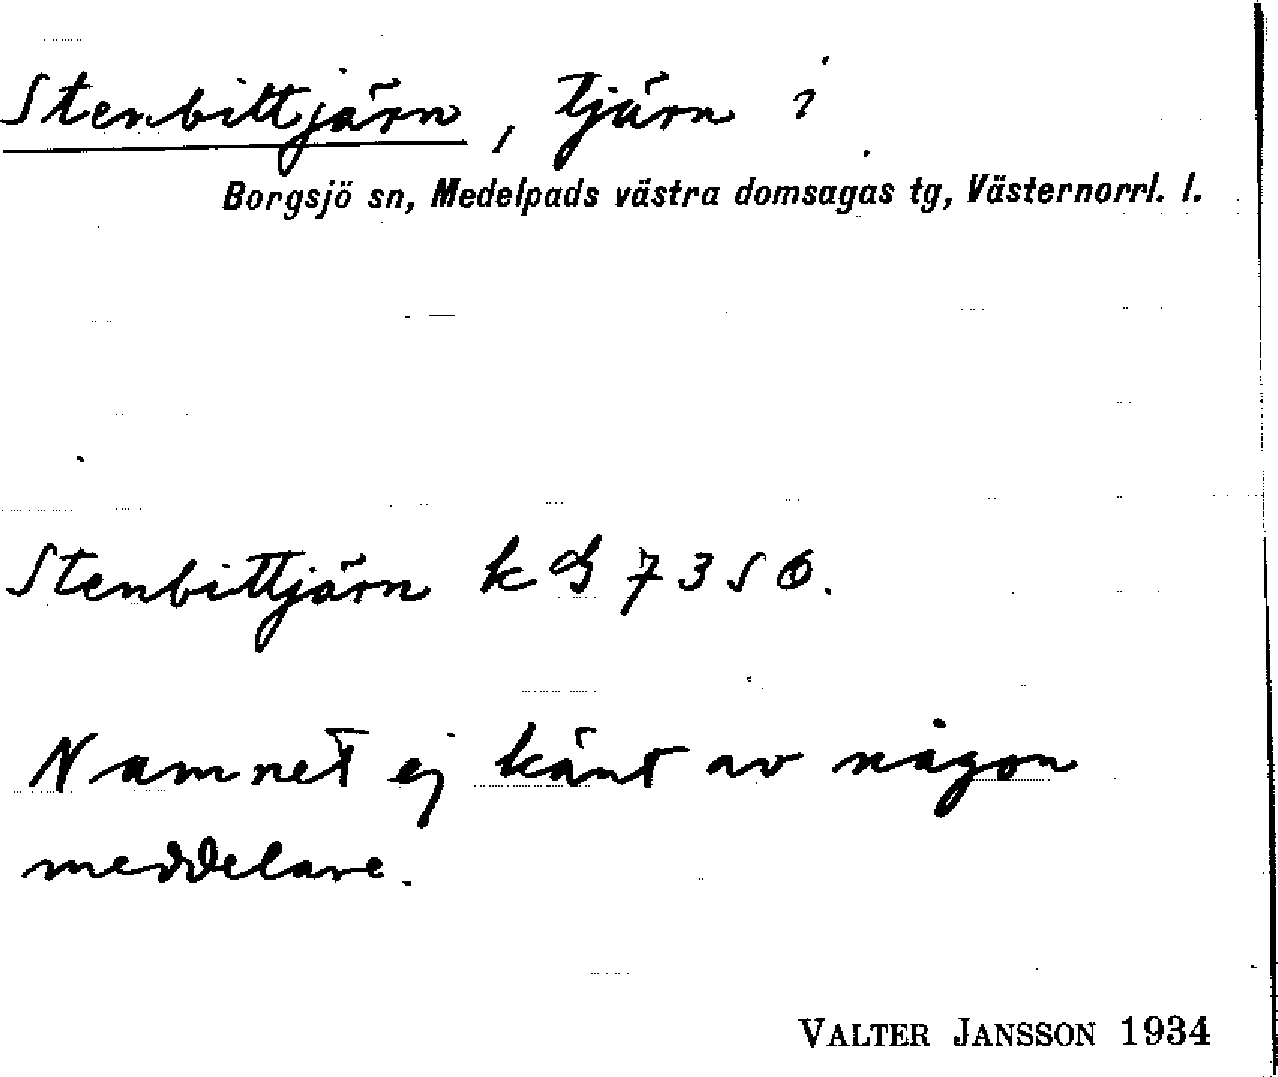 Stenbittjärn, tjärn i
Borgsjö sn, Medelpads västra domsagas tg, Västernorrl. l.
Stenbittjärn k G 7356.
Namnet ej känt av någon
meddelare.
VALTER JANSSON 1934